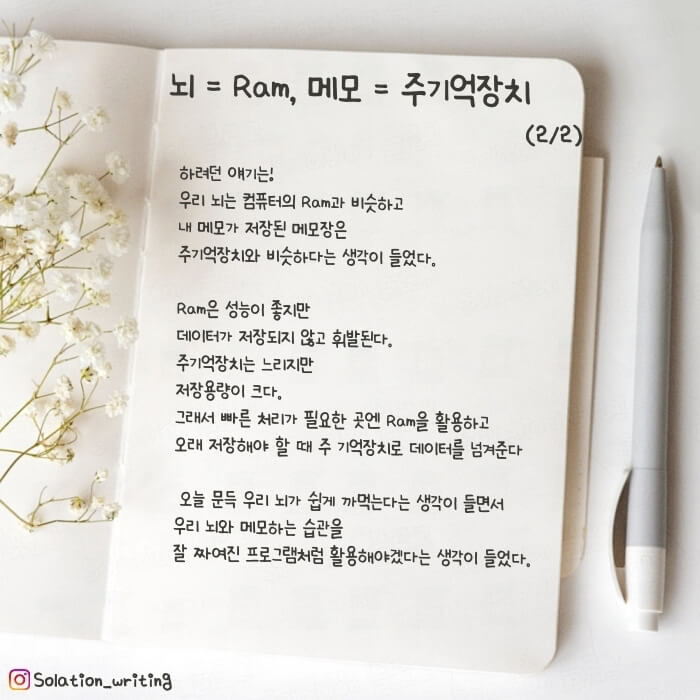 뇌 = Ram, 메모 = 주기억장치
(2/2)
하려던 얘기는!
우리 뇌는 컴퓨터의 Ram과 비슷하고
내 메모가 저장된 메모장은
주기억장치와 비슷하다는 생각이 들었다.
Ram은 성능이 좋지만
데이터가 저장되지 않고 휘발된다.
주기억장치는 느리지만
저장용량이 크다.
그래서 빠른 처리가 필요한 곳엔 Ram을 활용하고
오래 저장해야 할 때 주 기억장치로 데이터를 넘겨준다
오늘 문득 우리 뇌가 쉽게 까먹는다는 생각이 들면서
우리 뇌와 메모하는 습관을
잘 짜여진 프로그램처럼 활용해야겠다는 생각이 들었다.
Solation_writing